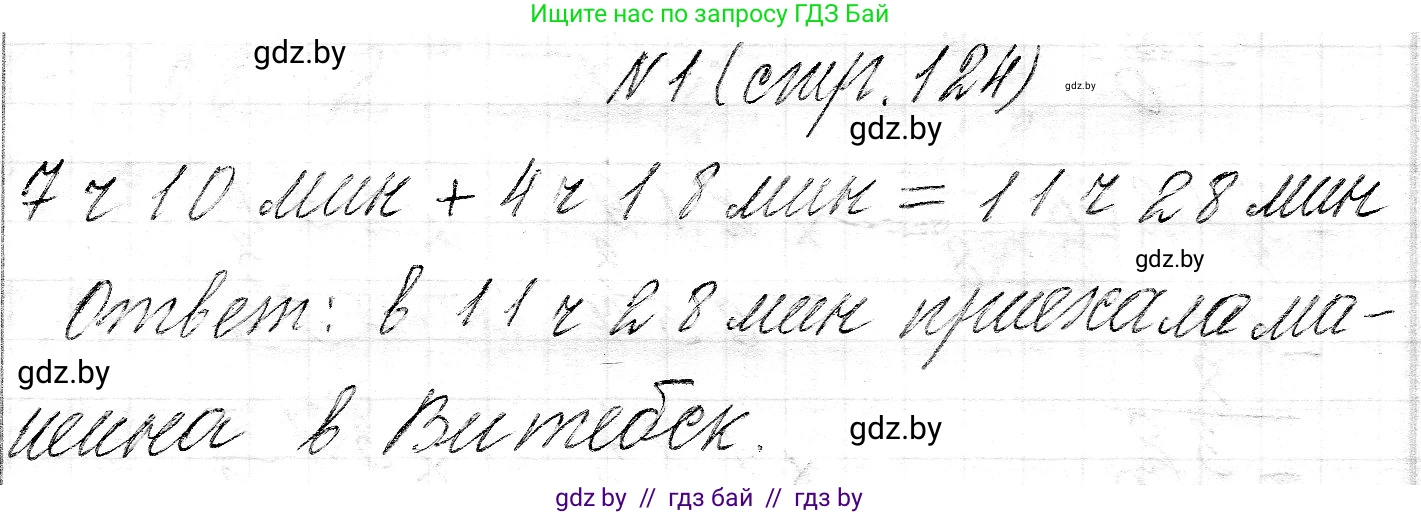 Ищите нас по запросу ГДЗ Бай
gdz.by
N1 (стр. 124)
gdz.by
gdz.by
7 ч 10 мин + 4 ч 18 мин = 11 ч 28 мин
gdz.by
Ответ: в 11 ч 28 мин приехала ма-
gdz.by
шина в Витебск.
gdz.by
gdz.by // гдз бай // гдз by